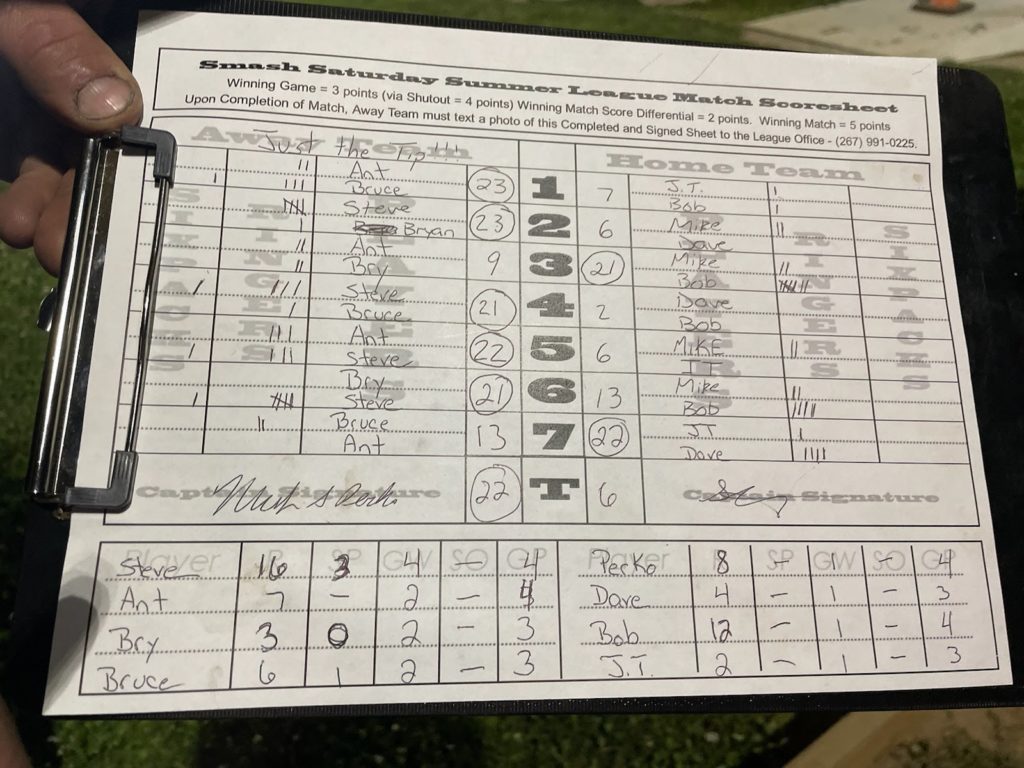 Smash Saturday Summer League Match Scoresheet
Winning Game = 3 points (via Shutout = 4 points) Winning Match Score Differential = 2 points. Winning Match = 5 points
Upon Completion of Match, Away Team must text a photo of this Completed and Signed Sheet to the League Office - (267) 991-0225.
Away Team Just the Tip!!! Home Team
Ant 23 1 7 J.T.
Bruce Bob
Steve 23 2 6 Mike
Bryan Dave
Ant 9 3 21 Mike
Bry Bob
Steve 21 4 2 Dave
Bruce Bob
Ant 22 5 6 MIKE
Steve JT
Bry 21 6 13 Mike
Steve Bob
Bruce 13 7 22 JT
Ant Dave
SIXPACKS RINGERS PLAYERS PLAYERS RINGERS SIXPACKS
Captain Signature 22 T 6 Captain Signature
Player R SP GW SO GP Player R SP GW SO GP
Steve 16 3 4 - 4 Perko 8 - - - 4
Ant 7 - 2 - 4 Dave 4 - 1 - 3
Bry 3 0 2 - 3 Bob 12 - 1 - 4
Bruce 6 1 2 - 3 J.T. 2 - 1 - 3